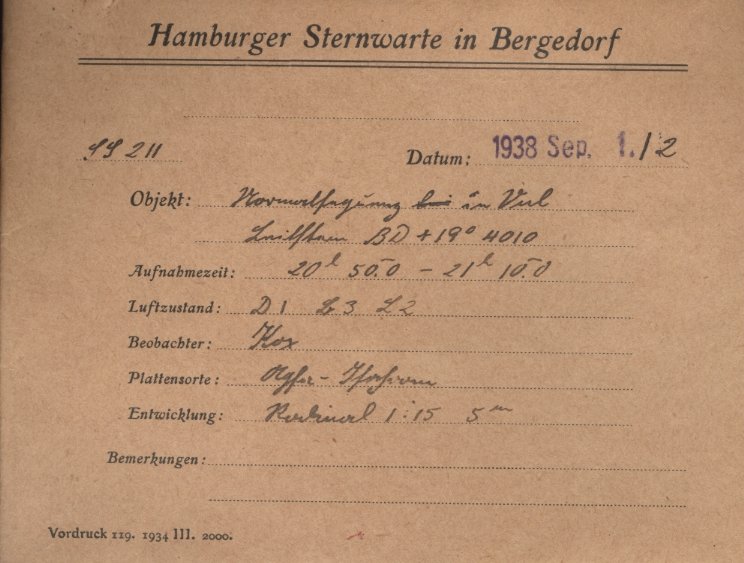 Hamburger Sternwarte in Bergedorf
SS 211 Datum: 1938 Sep. 1./2
Objekt: in Vul
Leitstern BD +19° 4010
Aufnahmezeit: 20h 50.0 - 21h 10.0
Luftzustand: D 1 L 2
Beobachter: Kox
Plattensorte: Agfa - Isochrom
Entwicklung: Rodinal 1:15 5m
Bemerkungen:
Vordruck 119. 1934 III. 2000.